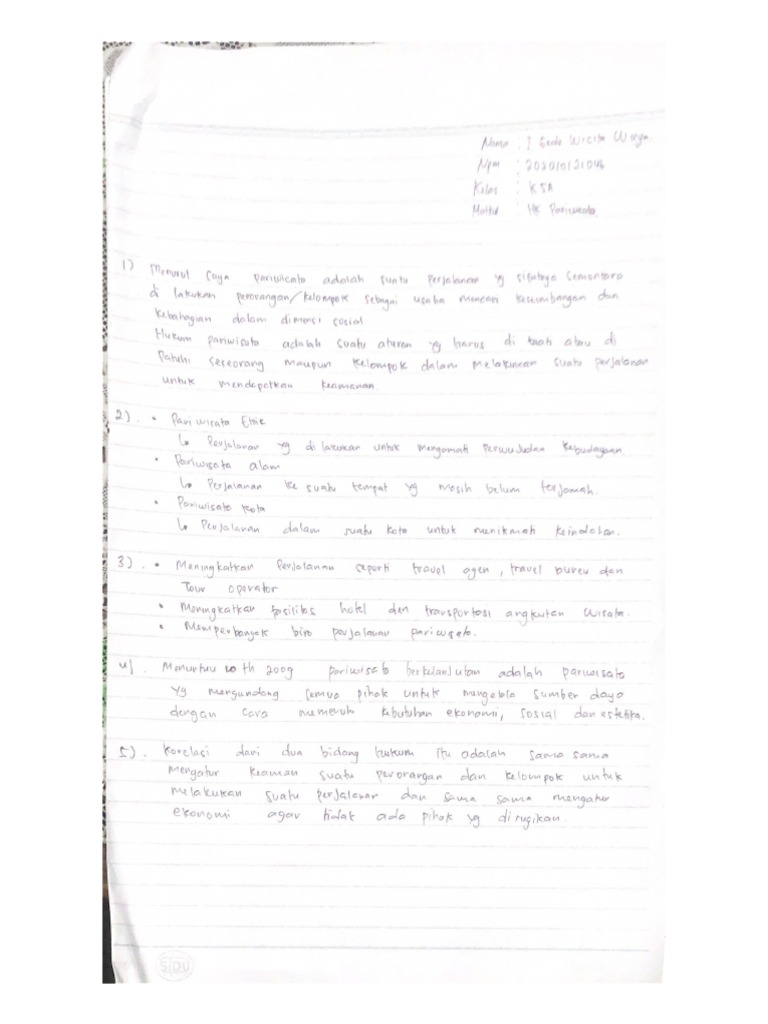 Nama : I Gede Wicita Wirya
Npm : 202010121046
Kelas : K5A
Matkul : HK Pariwisata
1) Menurut Saya pariwisata adalah suatu perjalanan yg sifatnya sementara
di lakukan perorangan/kelompok sebagai usaha mencari keseimbangan dan
kebahagian dalam dimensi sosial
Hukum pariwisata adalah suatu aturan yg harus di taati atau di
Patuhi seseorang maupun kelompok dalam melakukan suatu perjalanan
untuk mendapatkan keamanan.
2). • Pariwisata Etnik
↳ Perjalanan yg di lakukan untuk mengamati perwujudan kebudayaan
• Pariwisata alam
↳ Perjalanan ke suatu tempat yg masih belum terjamah.
• Pariwisata Kota
↳ Perjalanan dalam suatu kota untuk menikmati keindahan.
3). • Meningkatkan Perjalanan seperti travel agen, travel bureu dan
Tour operator
• Meningkatkan fasilitas hotel dan transportasi angkutan wisata.
• Memperbanyak biro perjalanan pariwisata.
4). Menurut uu 10 th 2009 pariwisata berkelanjutan adalah pariwisata
yg mengundang semua pihak untuk mengelola sumber daya
dengan cara memenuhi kebutuhan ekonomi, sosial dan estetika.
5). Korelasi dari dua bidang hukum itu adalah sama sama
mengatur keaman suatu perorangan dan kelompok untuk
melakukan suatu perjalanan dan sama sama mengatur
ekonomi agar tidak ada pihak yg dirugikan.
SIDU